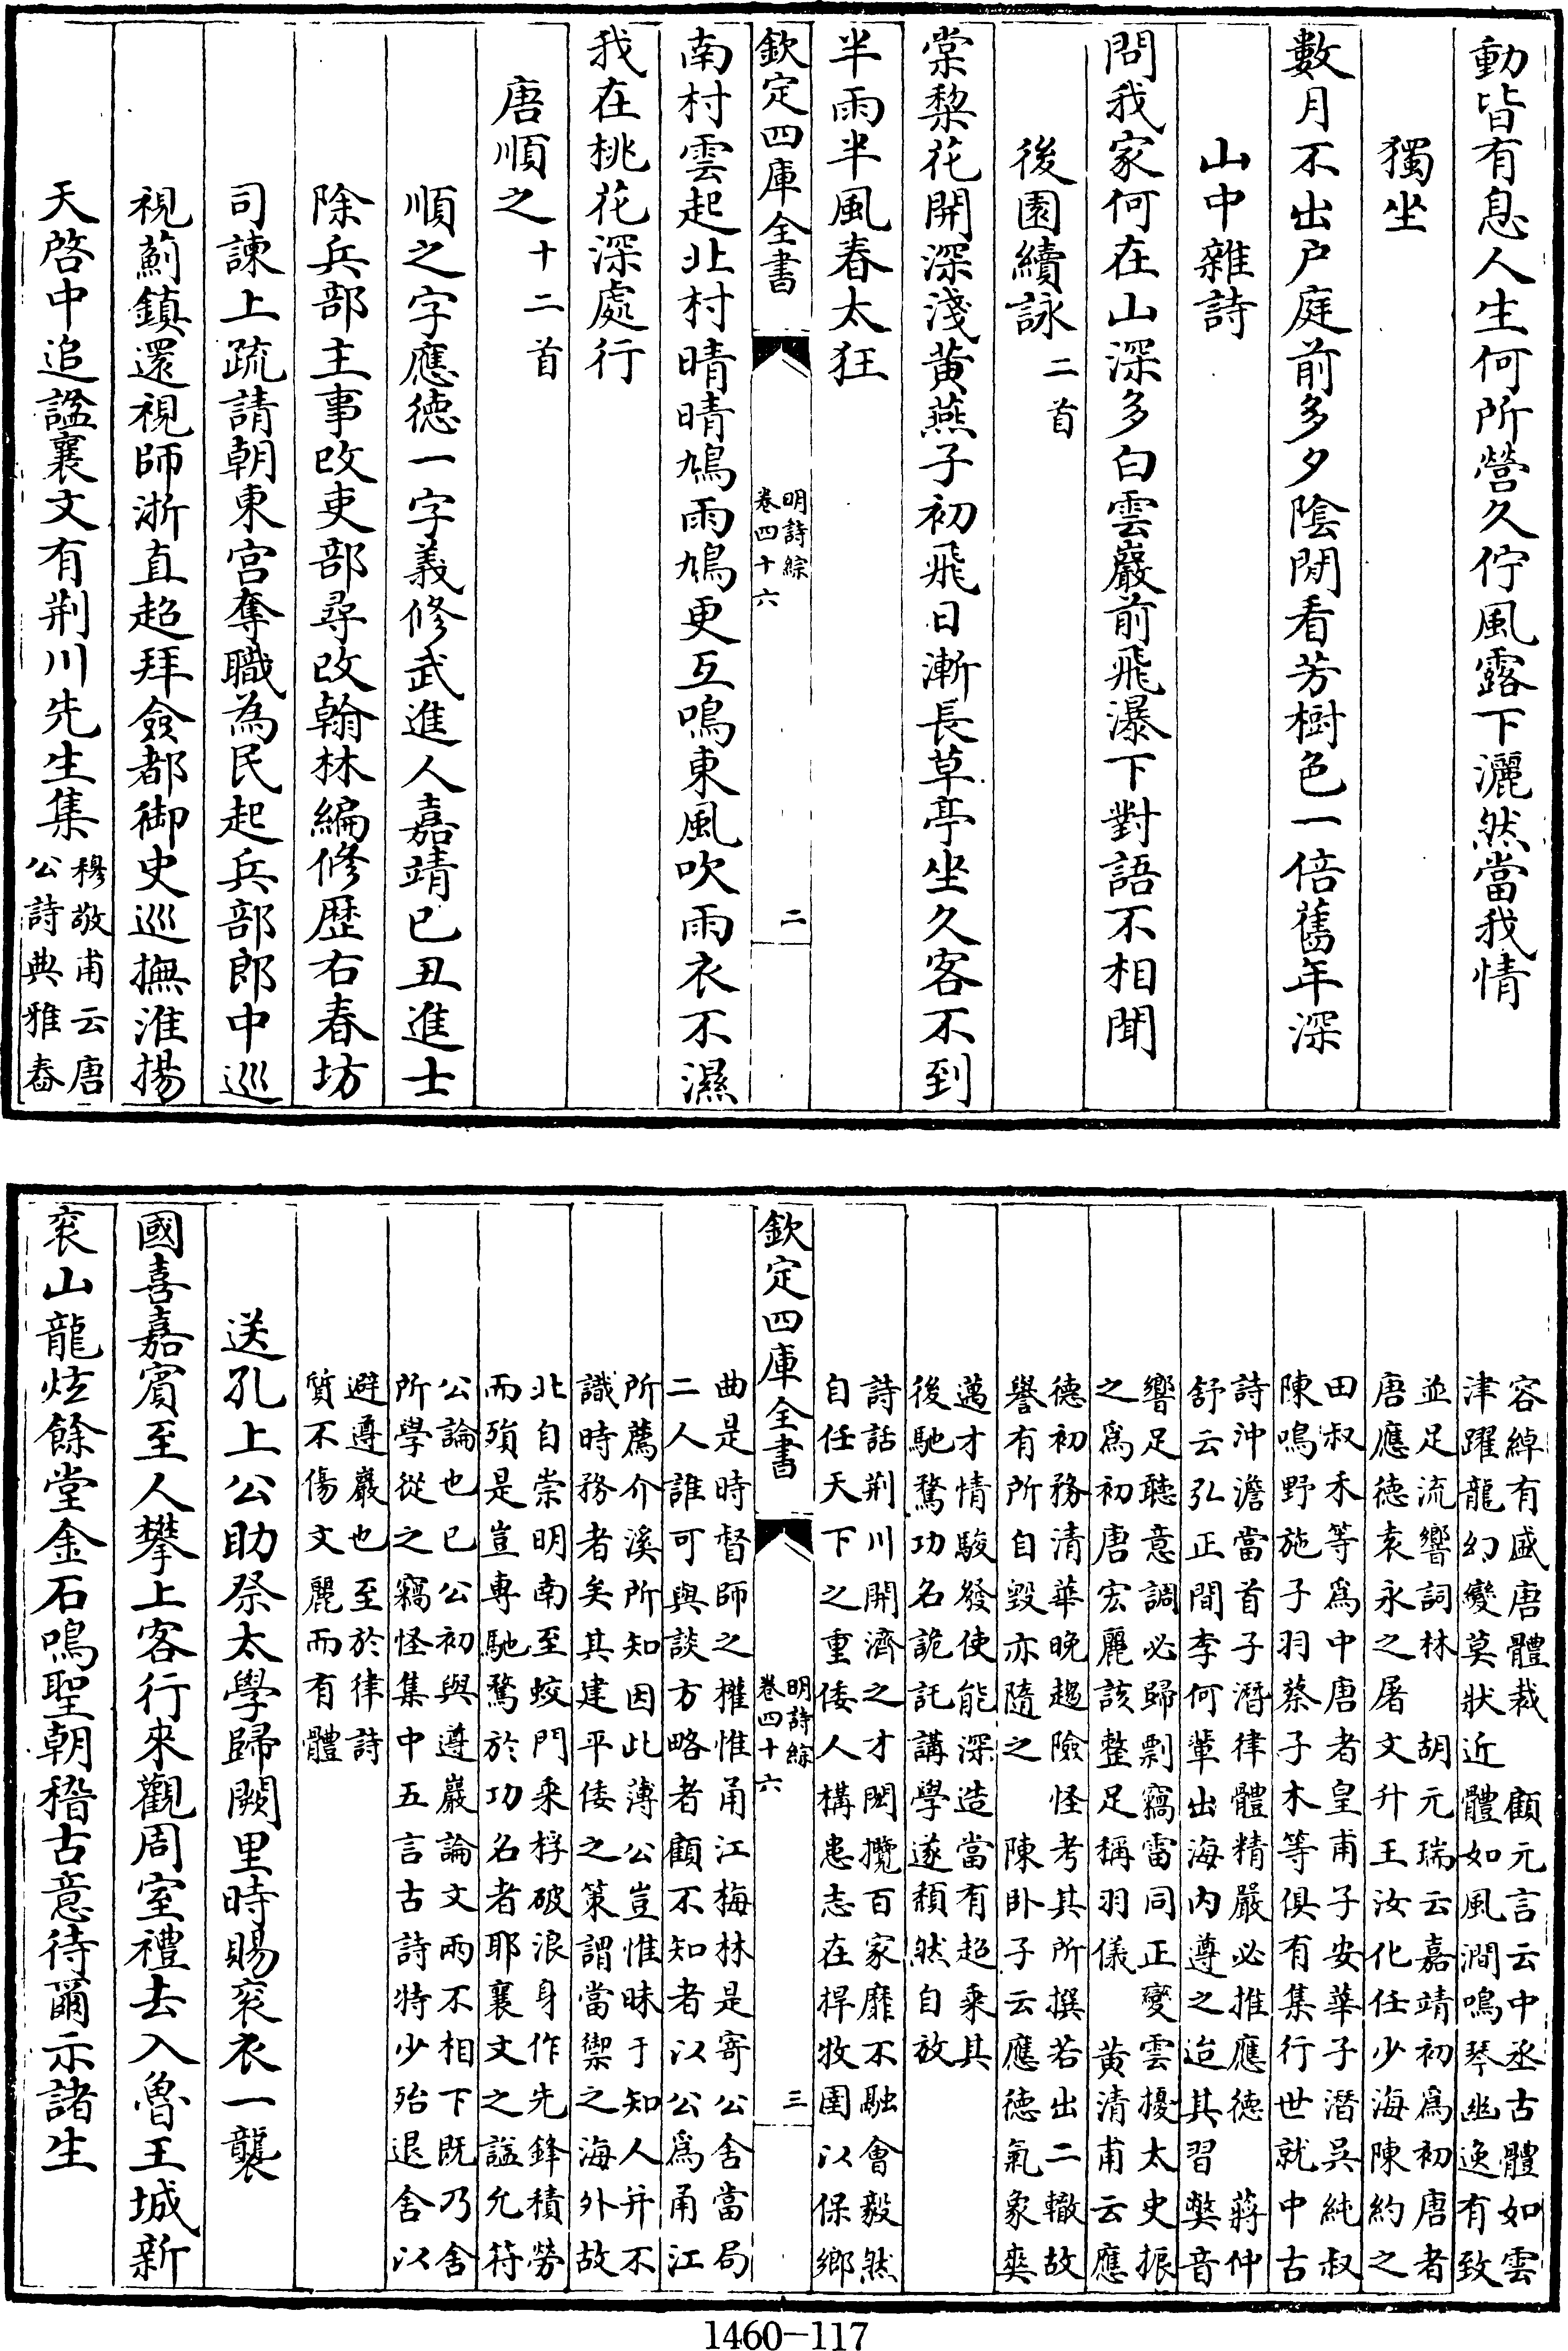 動皆有息人生何所營久佇風露下灑然當我情
獨坐
數月不出户庭前多夕陰閒看芳樹色一倍舊年深
山中雜詩
問我家何在山深多白雲巖前飛瀑下對語不相聞
後園續詠二首
棠棃花開深淺黄燕子初飛日漸長草亭坐久客不到
半雨半風春太狂
欽定四庫全書
明詩綜
卷四十六
二
南村雲起北村晴晴鳩雨鳩更互鳴東風吹雨衣不濕
我在桃花深處行
唐順之十二首
順之字應德一字義修武進人嘉靖已丑進士
除兵部主事改吏部尋改翰林編修歴右春坊
司諫上疏請朝東宫奪職為民起兵部郎中巡
視薊鎮還視師浙直超拜僉都御史巡撫淮揚
天啓中追諡襄文有荆川先生集
穆敬甫云唐
公詩典雅舂
容綽有盛唐體裁 顧元言云中丞古體如雲
津躍龍幻變莫狀近體如風澗鳴琴幽逸有致
並足流響詞林 胡元瑞云嘉靖初爲初唐者
唐應德袁永之屠文升王汝化任少海陳約之
田叔禾等爲中唐者皇甫子安華子潛吳純叔
陳鳴野施子羽蔡子木等俱有集行世就中古
詩沖澹當首子潛律體精嚴必推應德 蔣仲
舒云弘正間李何輩出海内遵之迨其習弊音
響足聽意調必歸剽竊雷同正變雲擾太史振
之爲初唐宏麗該整足稱羽儀 黄清甫云應
德初務清華晚趨險怪考其所撰若出二轍故
譽有所自毀亦隨之 陳卧子云應德氣象爽
邁才情駿發使能深造當有超乘其
後馳騖功名詭託講學遂頽然自放
詩話荆川開濟之才閎攬百家靡不融會毅然
自任天下之重倭人構患志在捍牧圉以保鄉
欽定四庫全書
明詩綜
卷四十六
三
曲是時督師之權惟甬江梅林是寄公舍當局
二人誰可與談方略者顧不知者以公爲甬江
所薦介溪所知因此薄公豈惟昧于知人并不
識時務者矣其建平倭之策謂當禦之海外故
北自崇明南至蛟門乘桴破浪身作先鋒積勞
而殞是豈專馳騖於功名者耶襄文之諡允符
公論也已公初與遵巖論文兩不相下既乃舍
所學從之竊怪集中五言古詩特少殆退舍以
避遵巖也至於律詩
質不傷文麗而有體
送孔上公助祭太學歸闕里時賜衮衣一襲
國喜嘉賓至人攀上客行來觀周室禮去入魯王城新
衮山龍炫餘堂金石鳴聖朝稽古意待爾示諸生
1460-117